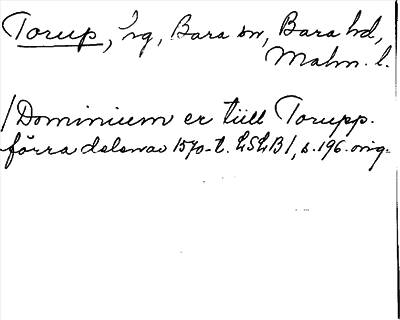 Torup, hg, Bara sn, Bara hd,
Malm. l.
/Dominium er tiill Torupp.
förra delen av 1570-t. LSLB 1, s. 196. orig.